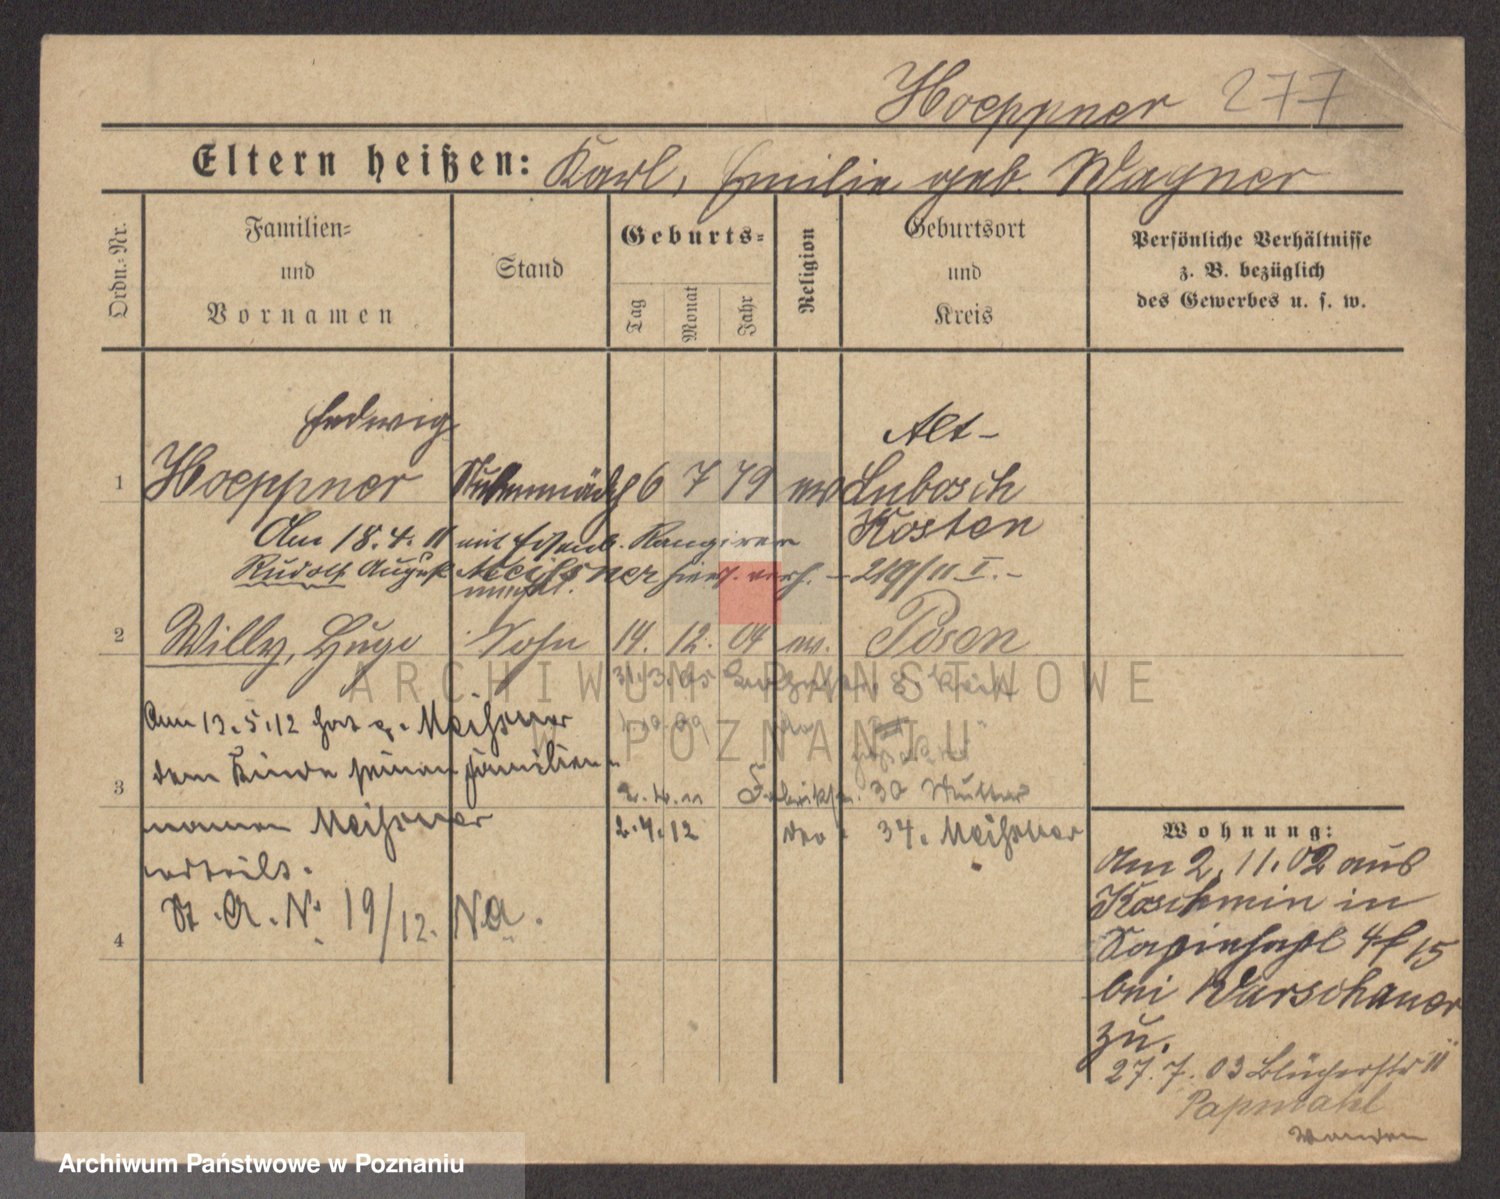 Hoeppner 277
Eltern heißen: Karl, Emilie geb. Wagner
Ordn.-Nr.
Familien-
und
Vornamen
Stand
Geburts-
Tag
Monat
Jahr
Religion
Geburtsort
und
Kreis
Persönliche Verhältnisse
z. B. bezüglich
des Gewerbes u. s. w.
Hedwig
Alt-
1 Hoeppner Stubenmädch 6 7 79 ev Lubosch
Kosten
Am 18.4.11 mit Eisenb. Rangirer
Rudolf August Meißner hier verh. - 219/11 I. -
2 Willy, Hugo Sohn 14. 12. 04 ev. Posen
ARCHIWUM PAŃSTWOWE
W POZNANIU
31.3.05
Am 13.5.12 hat p. Meißner
dem Kinde seinen Familien-
3
namen Meißner
erteilt.
St. A. N. 19/12. Na.
4
2.4.11 30 Mutter
2.4.12 dto 34. Meißner
Wohnung:
Am 2.11.02 aus
Koschmin in
Sapiehapl 4 15
bei Warschauer
zu.
27.7.03 Blücherstr 11
Papmahl
Archiwum Państwowe w Poznaniu